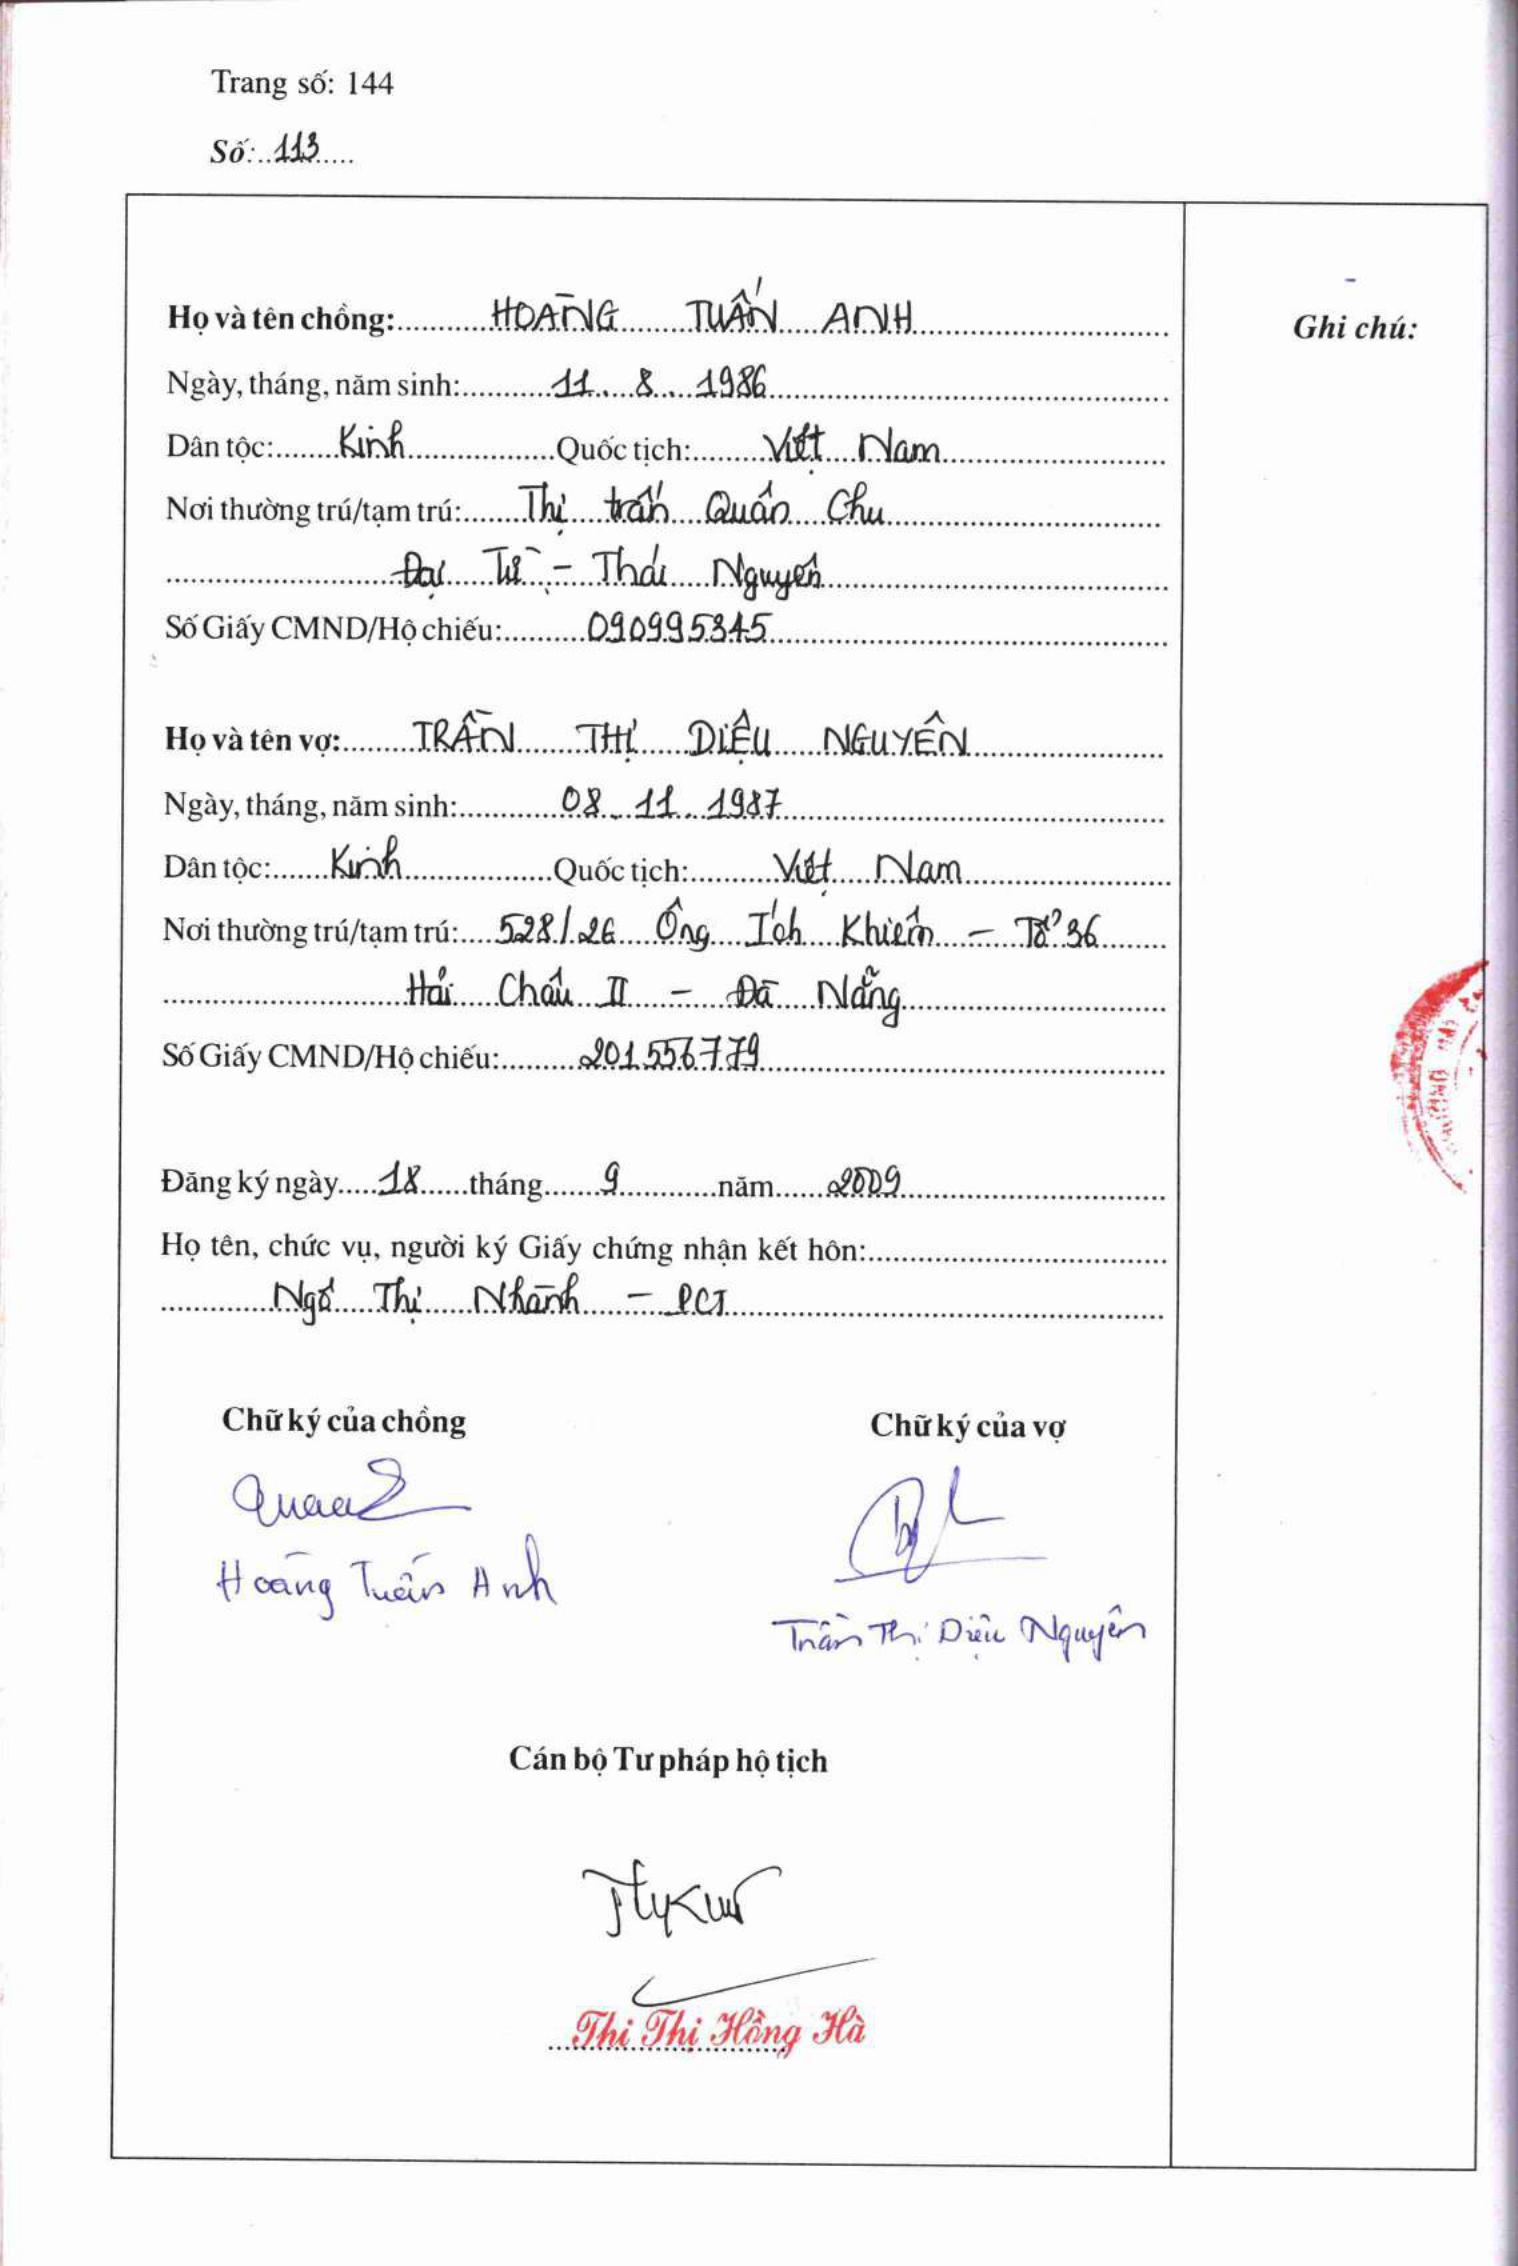 Trang số: 144
Số: 113
Họ và tên chồng: HOÀNG TUẤN ANH
Ghi chú:
Ngày, tháng, năm sinh: 11 . 8 . 1986
Dân tộc: Kinh Quốc tịch: Việt Nam
Nơi thường trú/tạm trú: Thị trấn Quân Chu
Đại Từ - Thái Nguyên
Số Giấy CMND/Hộ chiếu: 090995345
Họ và tên vợ: TRẦN THỊ DIỆU NGUYÊN
Ngày, tháng, năm sinh: 08 . 11 . 1987
Dân tộc: Kinh Quốc tịch: Việt Nam
Nơi thường trú/tạm trú: 528/26 Ông Ích Khiêm - Tổ 36
Hải Châu II - Đà Nẵng
Số Giấy CMND/Hộ chiếu: 201556779
Đăng ký ngày 18 tháng 9 năm 2009
Họ tên, chức vụ, người ký Giấy chứng nhận kết hôn:
Ngô Thị Nhành - PCT
Chữ ký của chồng Chữ ký của vợ
Hoàng Tuấn Anh
Trần Thị Diệu Nguyên
Cán bộ Tư pháp hộ tịch
Thi Thị Hồng Hà